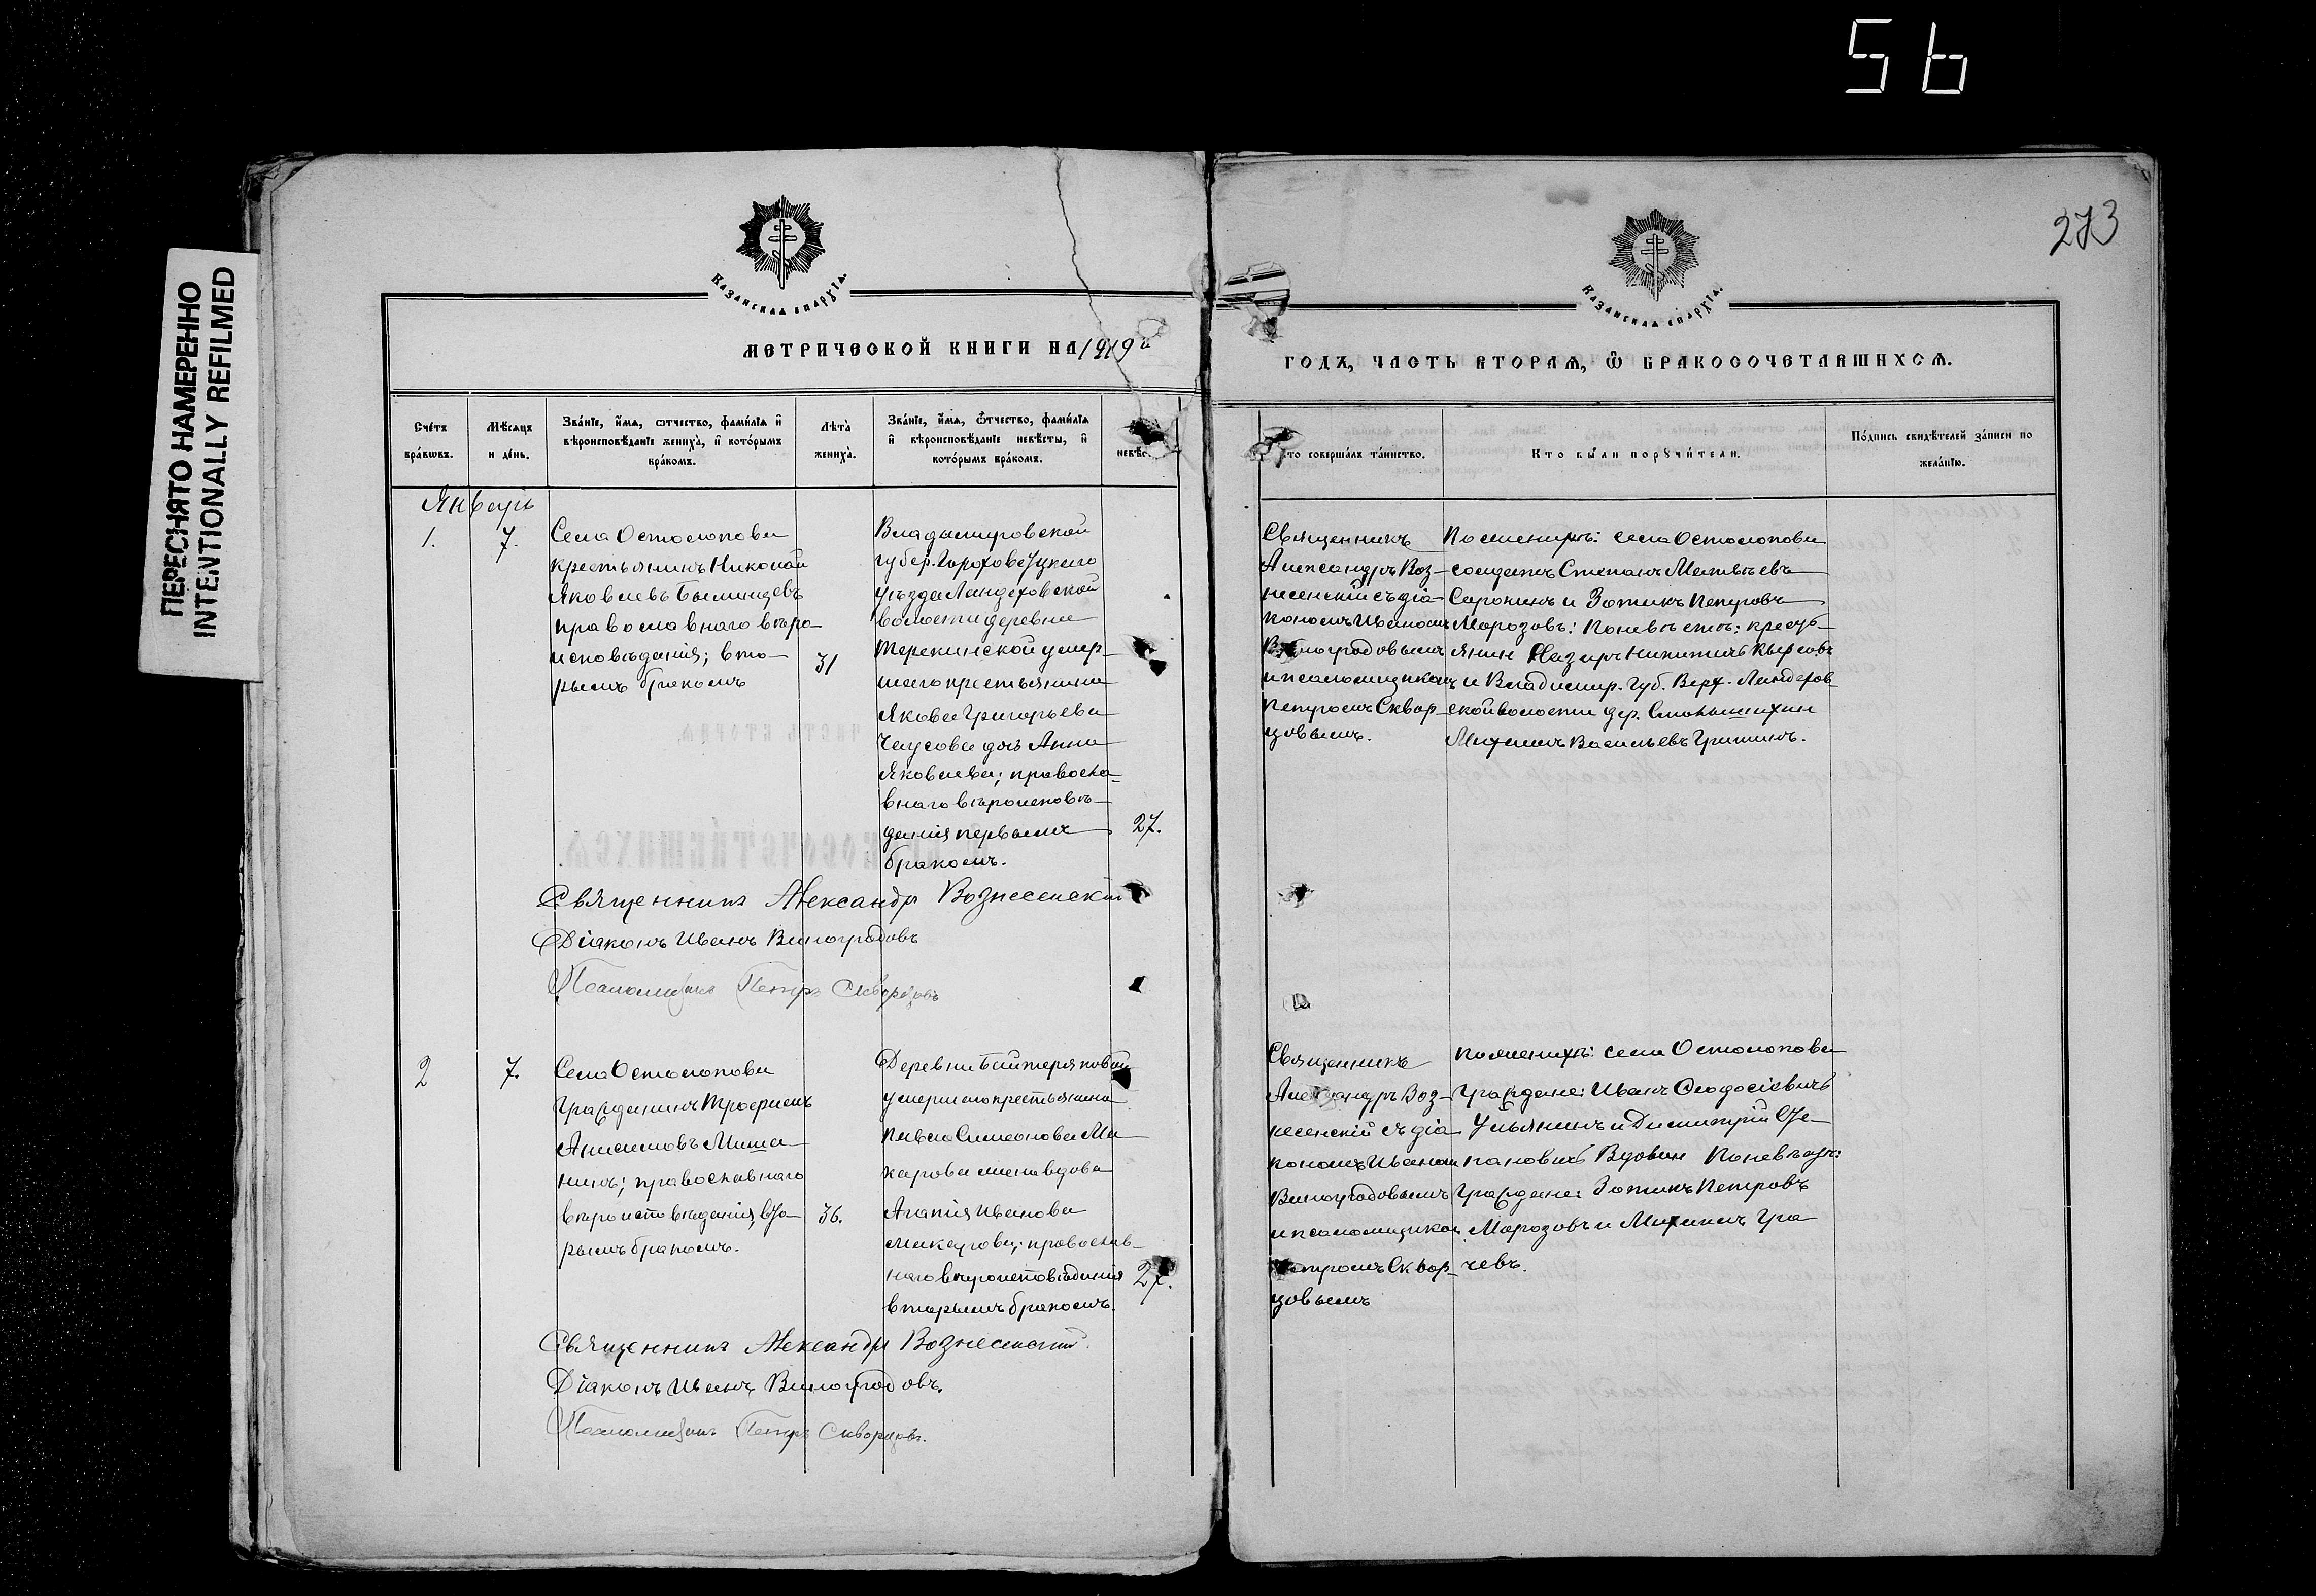 56
273
ПЕРЕСНЯТО НАМЕРЕННО
INTENTIONALLY REFILMED
Казанская епархїа.
Казанская епархїа.
МЕТРИЧЕСКОЙ КНИГИ НА 1919й
ГОДЪ, ЧАСТЬ ВТОРАЯ, Ѿ БРАКОСОЧЕТАВШИХСЯ.
Сче́тъ бра́кѡвъ.
Мѣсяцъ и де́нь.
Зва́нїе, и́мя, ѻтчество, фами́лїя и вѣроисповѣ́данїе жениха̀, и кото́рымъ бра́комъ.
Лѣта̀ жениха̀.
Зва́нїе, и́мя, ѻтчество, фами́лїя и вѣроисповѣ́данїе невѣ́сты, и кото́рымъ бра́комъ.
невѣс
то соверша́лъ та́инство.
Кто бы́ли порꙋчи́тели.
По́дпись свидѣ́телей за́писи по жела́нїю.
Январь
1.
7.
Села Остолопова
крестьянинъ Николай
Яковлевъ
православнаго вѣро-
исповѣданія; вто-
рымъ бракомъ
31
Владимировской
губер. Гороховецкаго
уѣзда Ландеховской
волости деревни
Терехинской умер-
шаго крестьянина
Якова Григорьева
Чаусова дочь Анна
Яковлева; правосла-
внаго вѣроисповѣ-
данія первымъ
бракомъ.
27.
Священникъ
Александръ Воз-
несенскій съ діа-
кономъ Иваномъ
Виноградовымъ
и псаломщикомъ
Петромъ Сквор-
цовымъ.
По женихѣ: села Остолопова
солдатъ Степанъ Матвѣевъ
Сорокинъ и Зотикъ Петровъ
Морозовъ: По невѣстѣ: кресть-
янин Назаръ Никитичъ
и Владимир. губ. Верх. Ландехов-
ской волости дер.
Михаилъ Васильевъ Гришинъ.
Священникъ Александръ Вознесенскій
Діаконъ Иванъ Виноградовъ
Псаломщикъ Петръ Скворцовъ
2
7.
Села Остолопова
Гражданинъ Трофимъ
Анисимовъ Миша-
нинъ; православнаго
вѣроисповѣданія, вто-
рымъ бракомъ.
36.
Деревни Байтеряковой
умершаго крестьянина
Павла Симеонова Ма-
карова жена вдова
Агапія Иванова
Макарова; православ-
наго вѣроисповѣданія
вторымъ бракомъ.
27.
Священникъ
Александръ Воз-
несенскій съ діа-
кономъ Иваномъ
Виноградовымъ
и псаломщикомъ
Петромъ Сквор-
цовымъ
По женихѣ: села Остолопова
Граждане: Иванъ Ѳеодосіевичъ
Ульянинъ и Димитрій Сте-
пановичъ Вдовин По невѣстѣ:
Граждане: Зотикъ Петровъ
Морозовъ и Михаилъ Гра
чевъ.
Священникъ Александръ Вознесенскій
Діаконъ Иванъ Виноградовъ.
Псаломщикъ Петръ Скворцовъ.